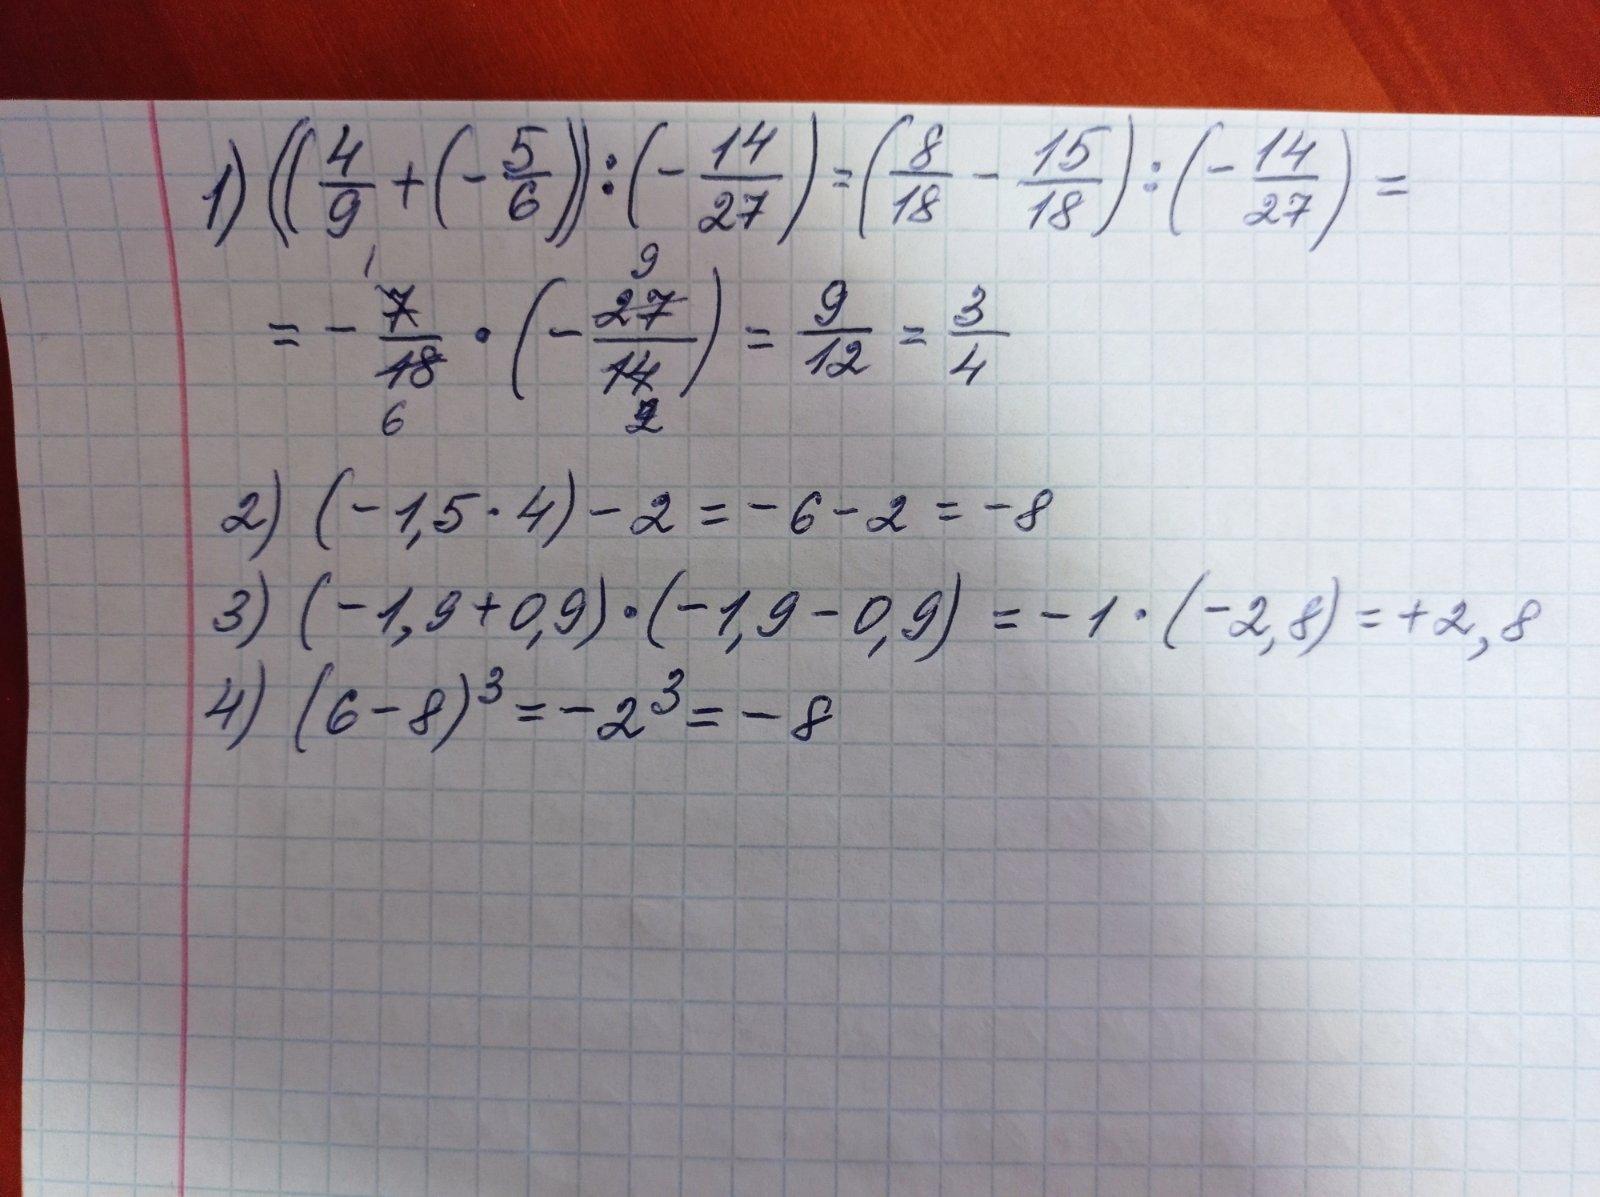 1) ((4/9 + (- 5/6)) : (- 14/27) = (8/18 - 15/18) : (- 14/27) =
1 9
= - 7/18 · (- 27/14) = 9/12 = 3/4
6 2
2) (-1,5 · 4) - 2 = -6 - 2 = -8
3) (-1,9 + 0,9) · (-1,9 - 0,9) = -1 · (-2,8) = +2,8
4) (6 - 8)³ = -2³ = -8